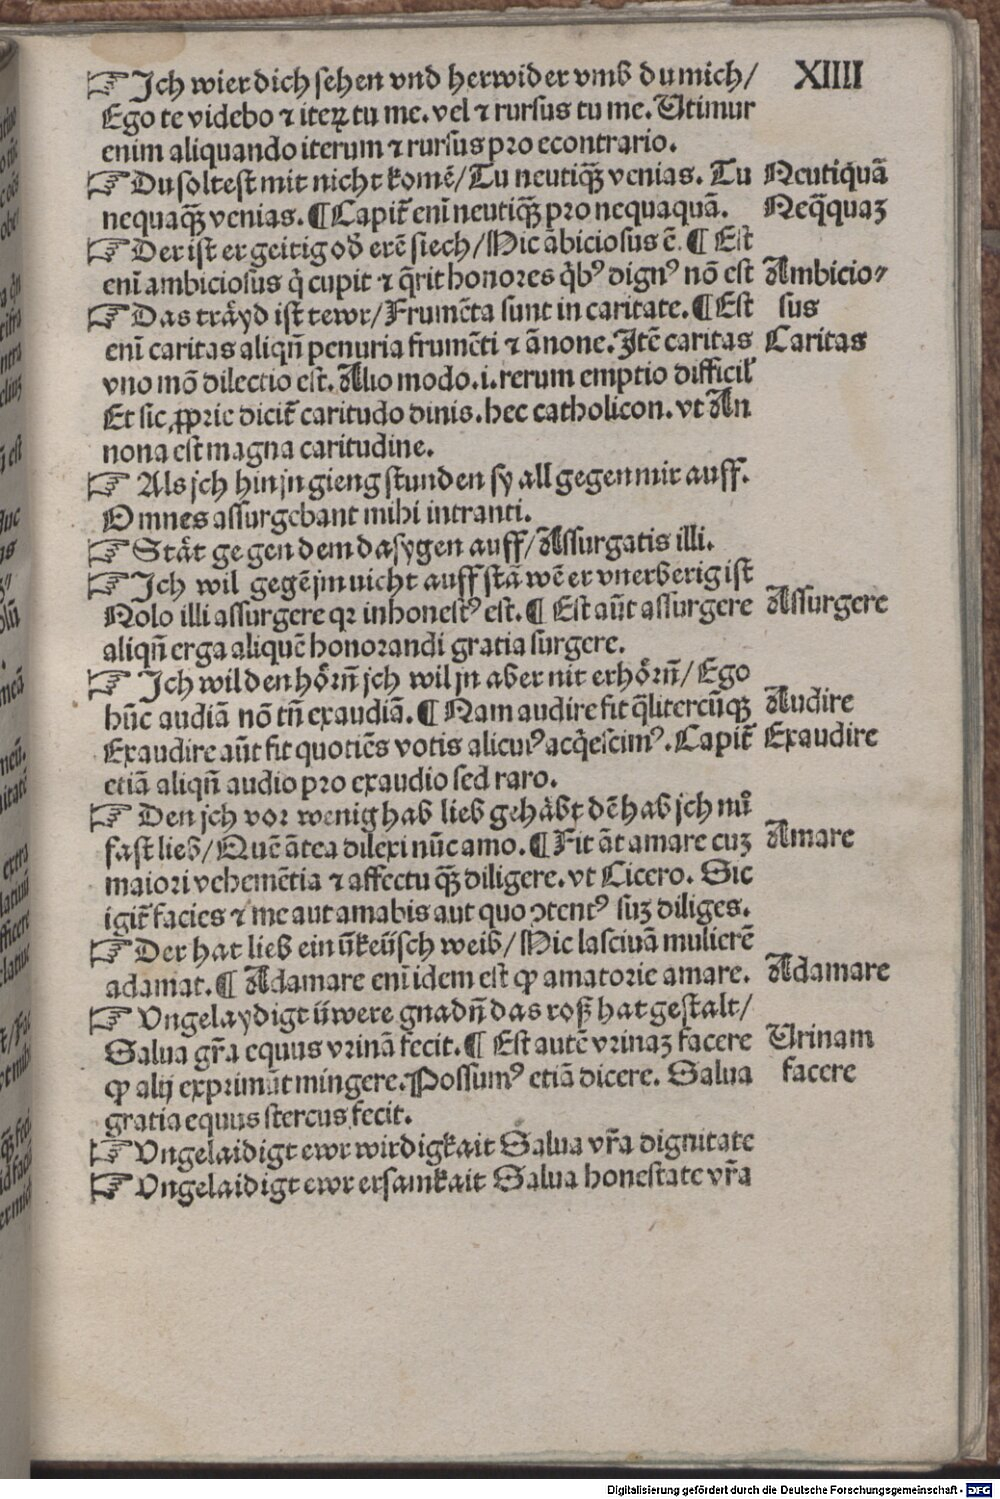 XIIII
☞ Jch wier dich sehen vnd herwider vmb du mich/
Ego te videbo ⁊ iteꝝ tu me. vel ⁊ rursus tu me. Utimur
enim aliquando iterum ⁊ rursus pro econtrario.
☞ Du soltest mit nicht komē/ Tu neutiqȝ venias. Tu
Neutiquā
nequaqȝ venias. ¶ Capit̄ eni neutiqȝ pro nequaquā.
Neq̄quaꝫ
☞ Der ist er geitig od̄ erē siech/ Hic ābiciosus ē. ¶ Est
enī ambiciosus q̇ cupit ⁊ q̄rit honores q̇bꝰ dignꝰ nō est
Ambicio⸗
☞ Das träyd ist tewr/ Frumēta sunt in caritate. ¶ Est
sus
enī caritas aliqn̄ penuria frumēti ⁊ ānone. Jtē caritas
Caritas
vno mō dilectio est. Alio modo .i. rerum emptio difficil̛
Et sic ꝓprie dicit̄ caritudo dinis. hec catholicon. vt An
nona est magna caritudine.
☞ Als jch hin jn gieng stunden sy all gegen mir auff.
Omnes assurgebant mihi intranti.
☞ Stāt gegen dem dasygen auff/ Assurgatis illi.
☞ Jch wil gegē jm nicht auff stā wē er vnerberig ist
Nolo illi assurgere qꝛ inhonestꝰ est. ¶ Est aūt assurgere
Assurgere
aliqn̄ erga aliquē honorandi gratia surgere.
☞ Jch wil den hörn̄ jch wil jn aber nit erhörn̄/ Ego
hūc audiā nō tn̄ exaudiā. ¶ Nam audire fit q̄litercūqȝ
Audire
Exaudire aūt fit quotiēs votis alicuiꝰ acq̄escimꝰ. Capit̄
Exaudire
etiā aliqn̄ audio pro exaudio sed raro.
☞ Den jch vor wenig hab lieb gehäbt dē hab jch nů
fast lieb/ Quē ātea dilexi nūc amo. ¶ Fit āt amare cuꝫ
Amare
maiori vehemētia ⁊ affectu qȝ diligere. vt Cicero. Sic
igit̄ facies ⁊ me aut amabis aut quo ↄtentꝰ suꝫ diliges.
☞ Der hat lieb ein ūkeüsch weib/ Hic lasciuā mulierē
adamat. ¶ Adamare enī idem est qꝙ amatorie amare.
Adamare
☞ Vngelaydigt üwere gnadn̄ das roß hat gestalt/
Salua gr̄a equus vrinā fecit. ¶ Est autē vrinaꝫ facere
Urinam
ꝙ alij exprimūt mingere. Possumꝰ etiā dicere. Salua
facere
gratia equus stercus fecit.
☞ Vngelaidigt ewr wirdigkait Salua vr̄a dignitate
☞ Vngelaidigt ewr ersamkait Salua honestate vr̄a
Digitalisierung gefördert durch die Deutsche Forschungsgemeinschaft - DFG